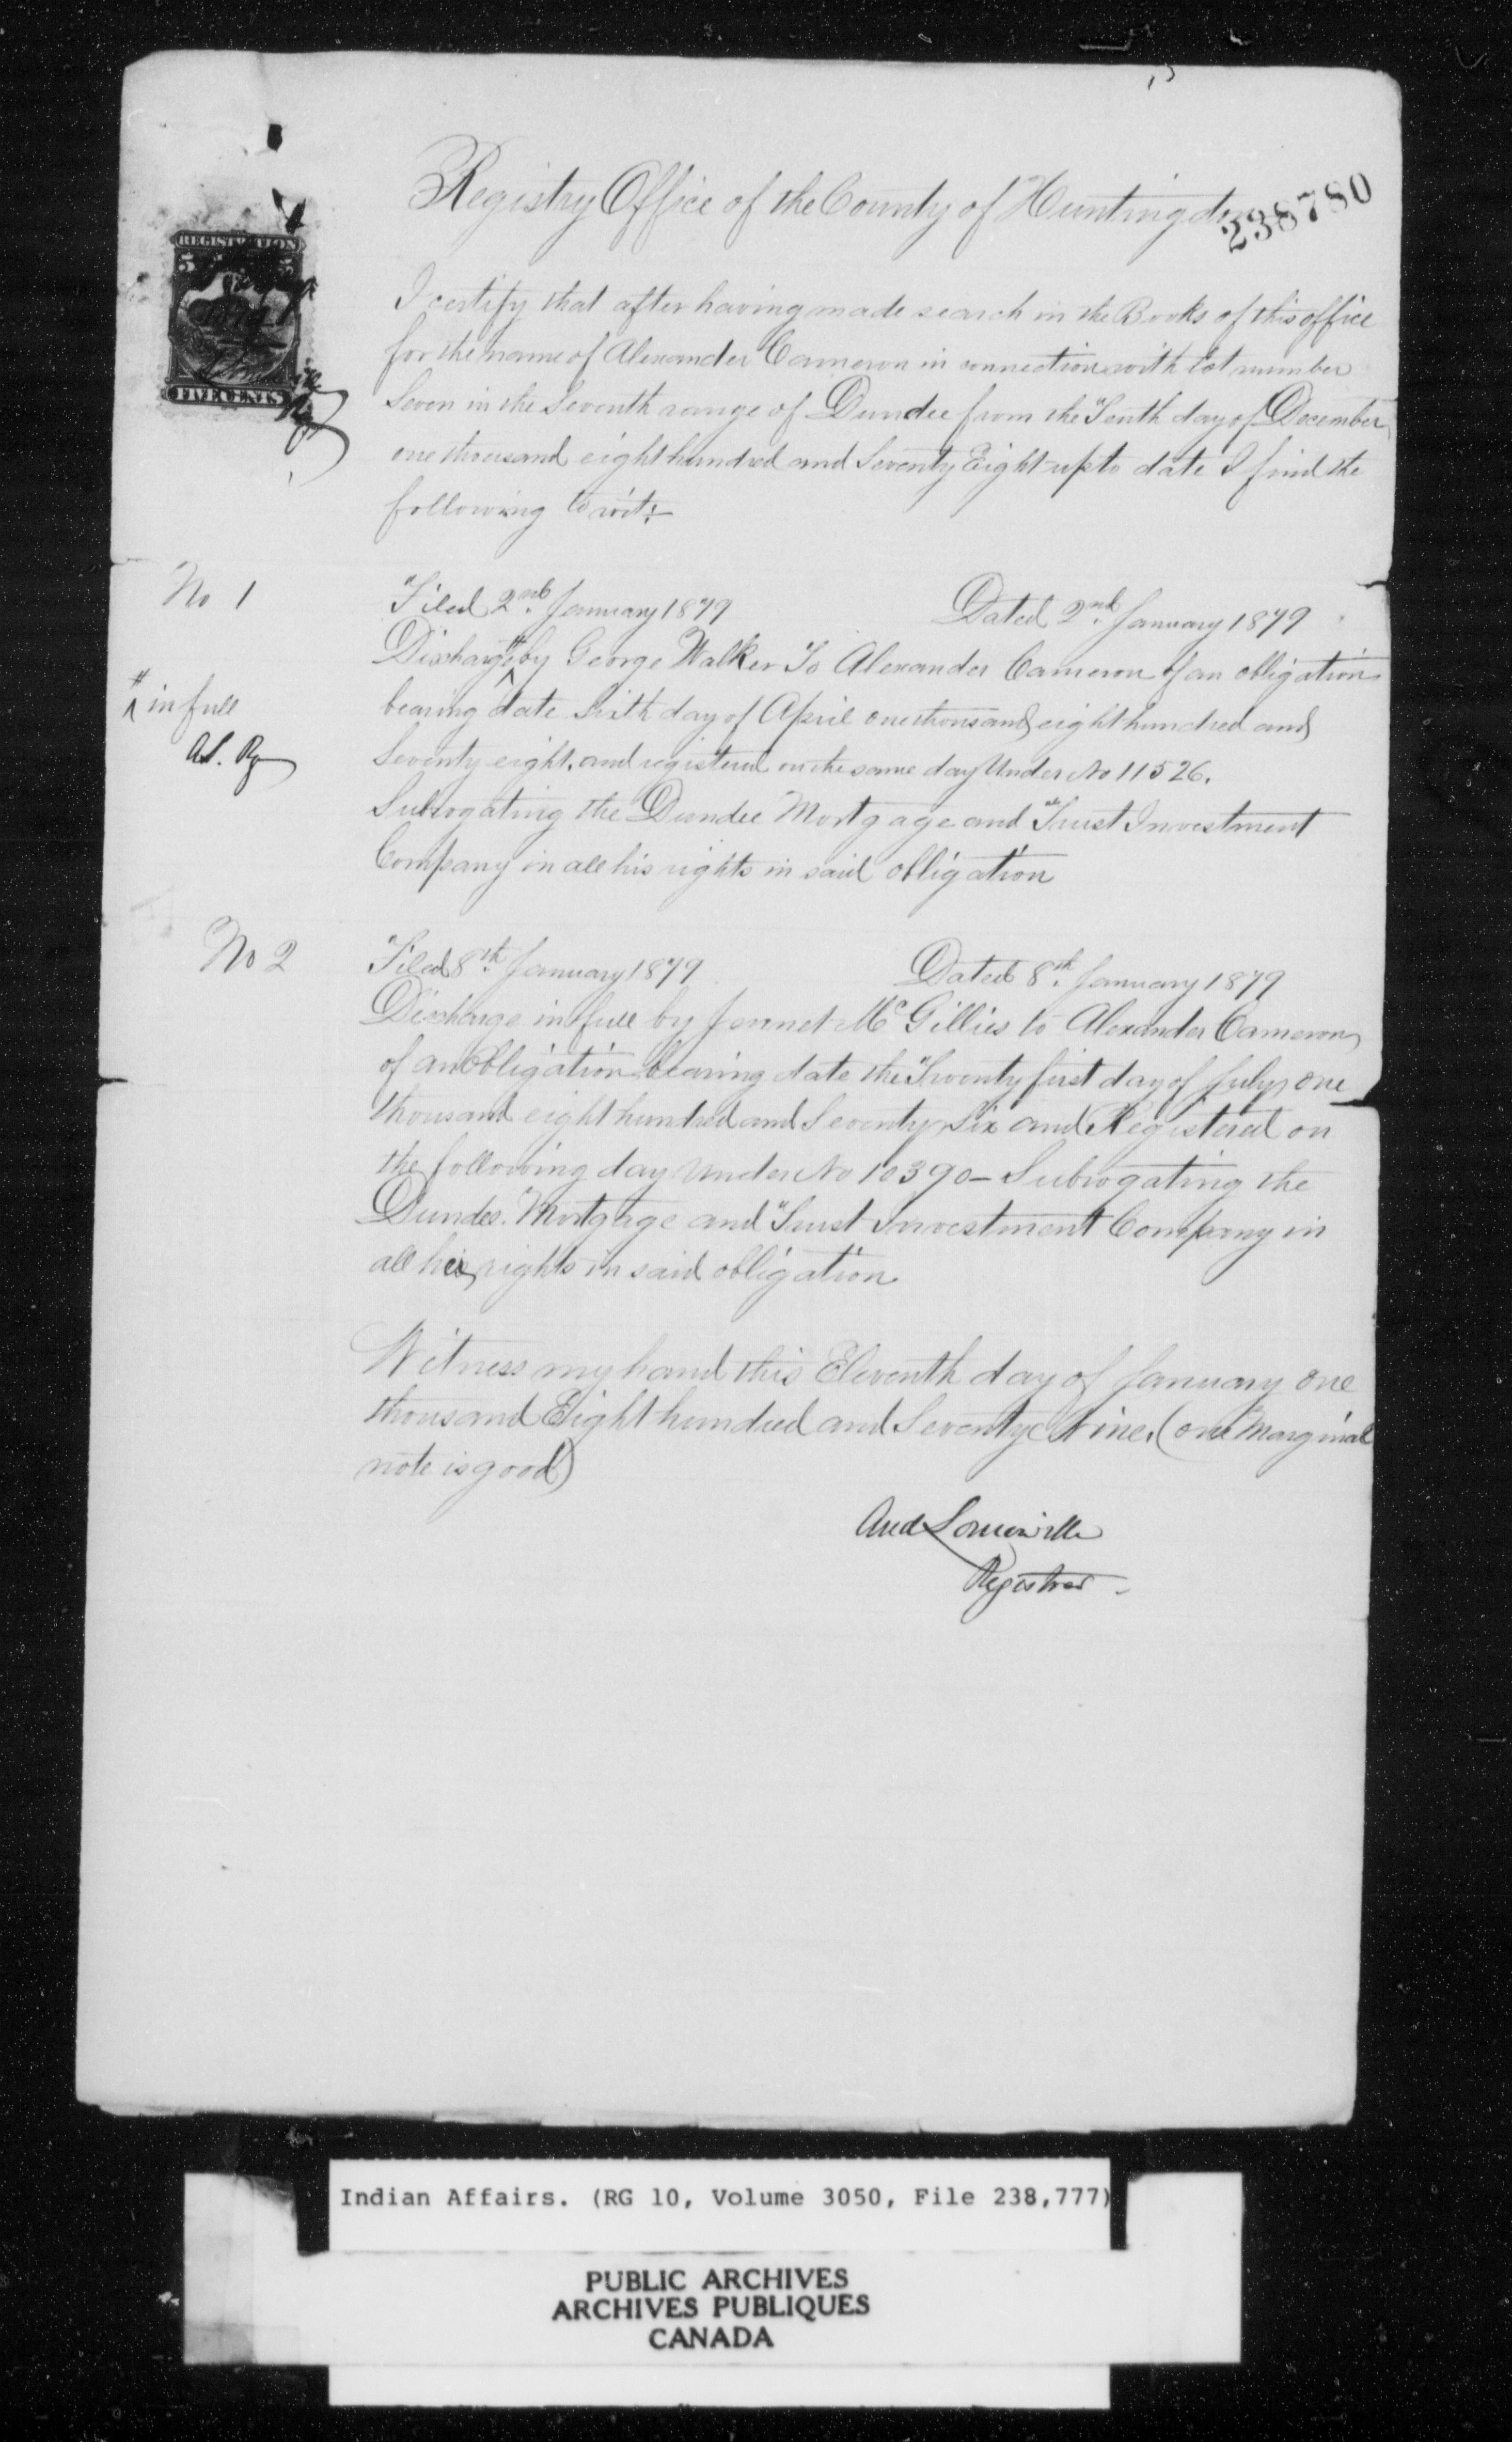 Registry Office of the County of Huntingdon
238780
REGISTRATION
5 5
FIVE CENTS
I certify that after having made search in the Books of this office
for the name of Alexander Cameron in connection with lot number
Seven in the Seventh range of Dundee from the Tenth day of December
one thousand eight hundred and Seventy Eight up to date I find the
following to wit:
No 1
Filed 2nd January 1879 Dated 2nd January 1879
Discharge # by George Walker To Alexander Cameron of an obligation
# in full
A.S. Rg
bearing date Sixth day of April one thousand eight hundred and
Seventy eight, and registered on the same day Under No 11526.
Subrogating the Dundee Mortgage and Trust Investment
Company in all his rights in said obligation
No 2
Filed 8th January 1879 Dated 8th January 1879
Discharge in full by Jennet McGillies to Alexander Cameron
of an Obligation bearing date the Twenty first day of July one
thousand eight hundred and Seventy Six and Registered on
the following day Under No 10390 - Subrogating the
Dundee Mortgage and Trust Investment Company in
all her rights in said obligation
Witness my hand this Eleventh day of January one
thousand Eight hundred and Seventy Nine. (one Marginal
note is good)
And Somerville
Registrar -
Indian Affairs. (RG 10, Volume 3050, File 238,777)
PUBLIC ARCHIVES
ARCHIVES PUBLIQUES
CANADA